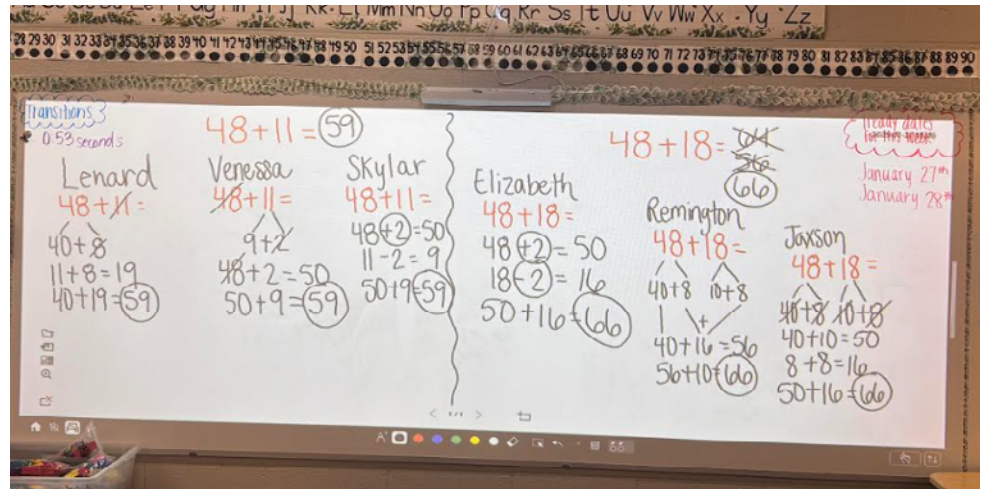 Kk Ll Mm Nn Oo Pp Qq Rr Ss Tt Uu Vv Ww Xx Yy Zz
28 29 30 31 32 33 34 35 36 37 38 39 40 41 42 43 44 45 46 47 48 49 50 51 52 53 54 55 56 57 58 59 60 61 62 63 64 65 66 67 68 69 70 71 72 73 74 75 76 77 78 79 80 81 82 83 84 85 86 87 88 89 90
Transitions 3
0:53 seconds
48+11=59
Lenard
48+11=
40+8
11+8=19
40+19=59
Venessa
48+11=
9+2
48+2=50
50+9=59
Skylar
48+11=
48+2=50
11-2=9
50+9=59
48+18=64
56
66
Elizabeth
48+18=
48+2=50
18-2=16
50+16=66
Remington
48+18=
40+8 10+8
+
40+16=56
56+10=66
Jaxson
48+18=
40+8 10+8
40+10=50
8+8=16
50+16=66
iready dates
for this week
January 27th
January 28th